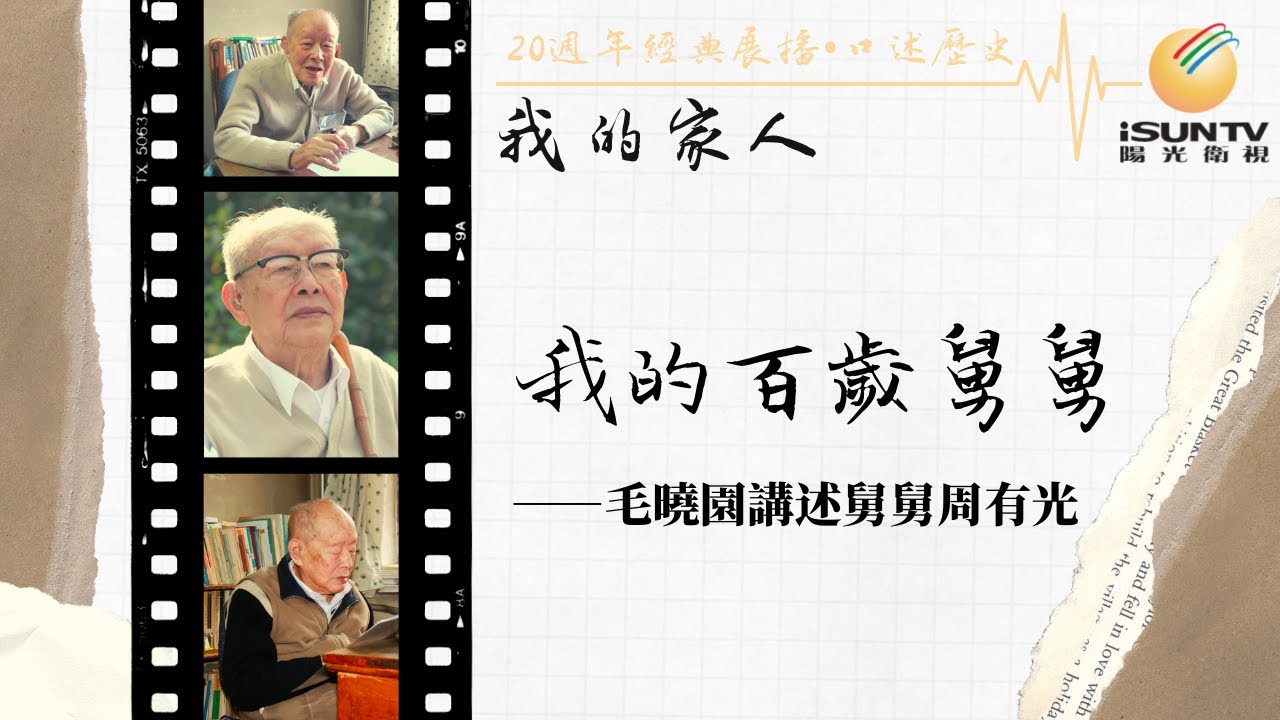 20週年經典展播•口述歷史
iSUNTV
陽光衛視
我的家人
我的百歲舅舅
——毛曉園講述舅舅周有光
TX 5063
10
9A
9
8A
5063
isited the Great
and fell in love with
to rebuild the village
a holida